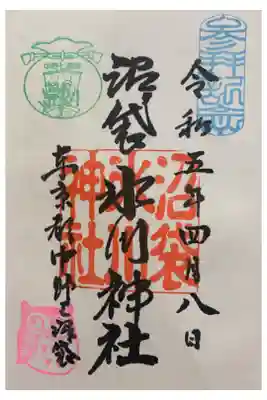 参拝記念
令和五年四月八日
沼袋氷川神社
沼袋
氷川
神社
東京都中野区沼袋